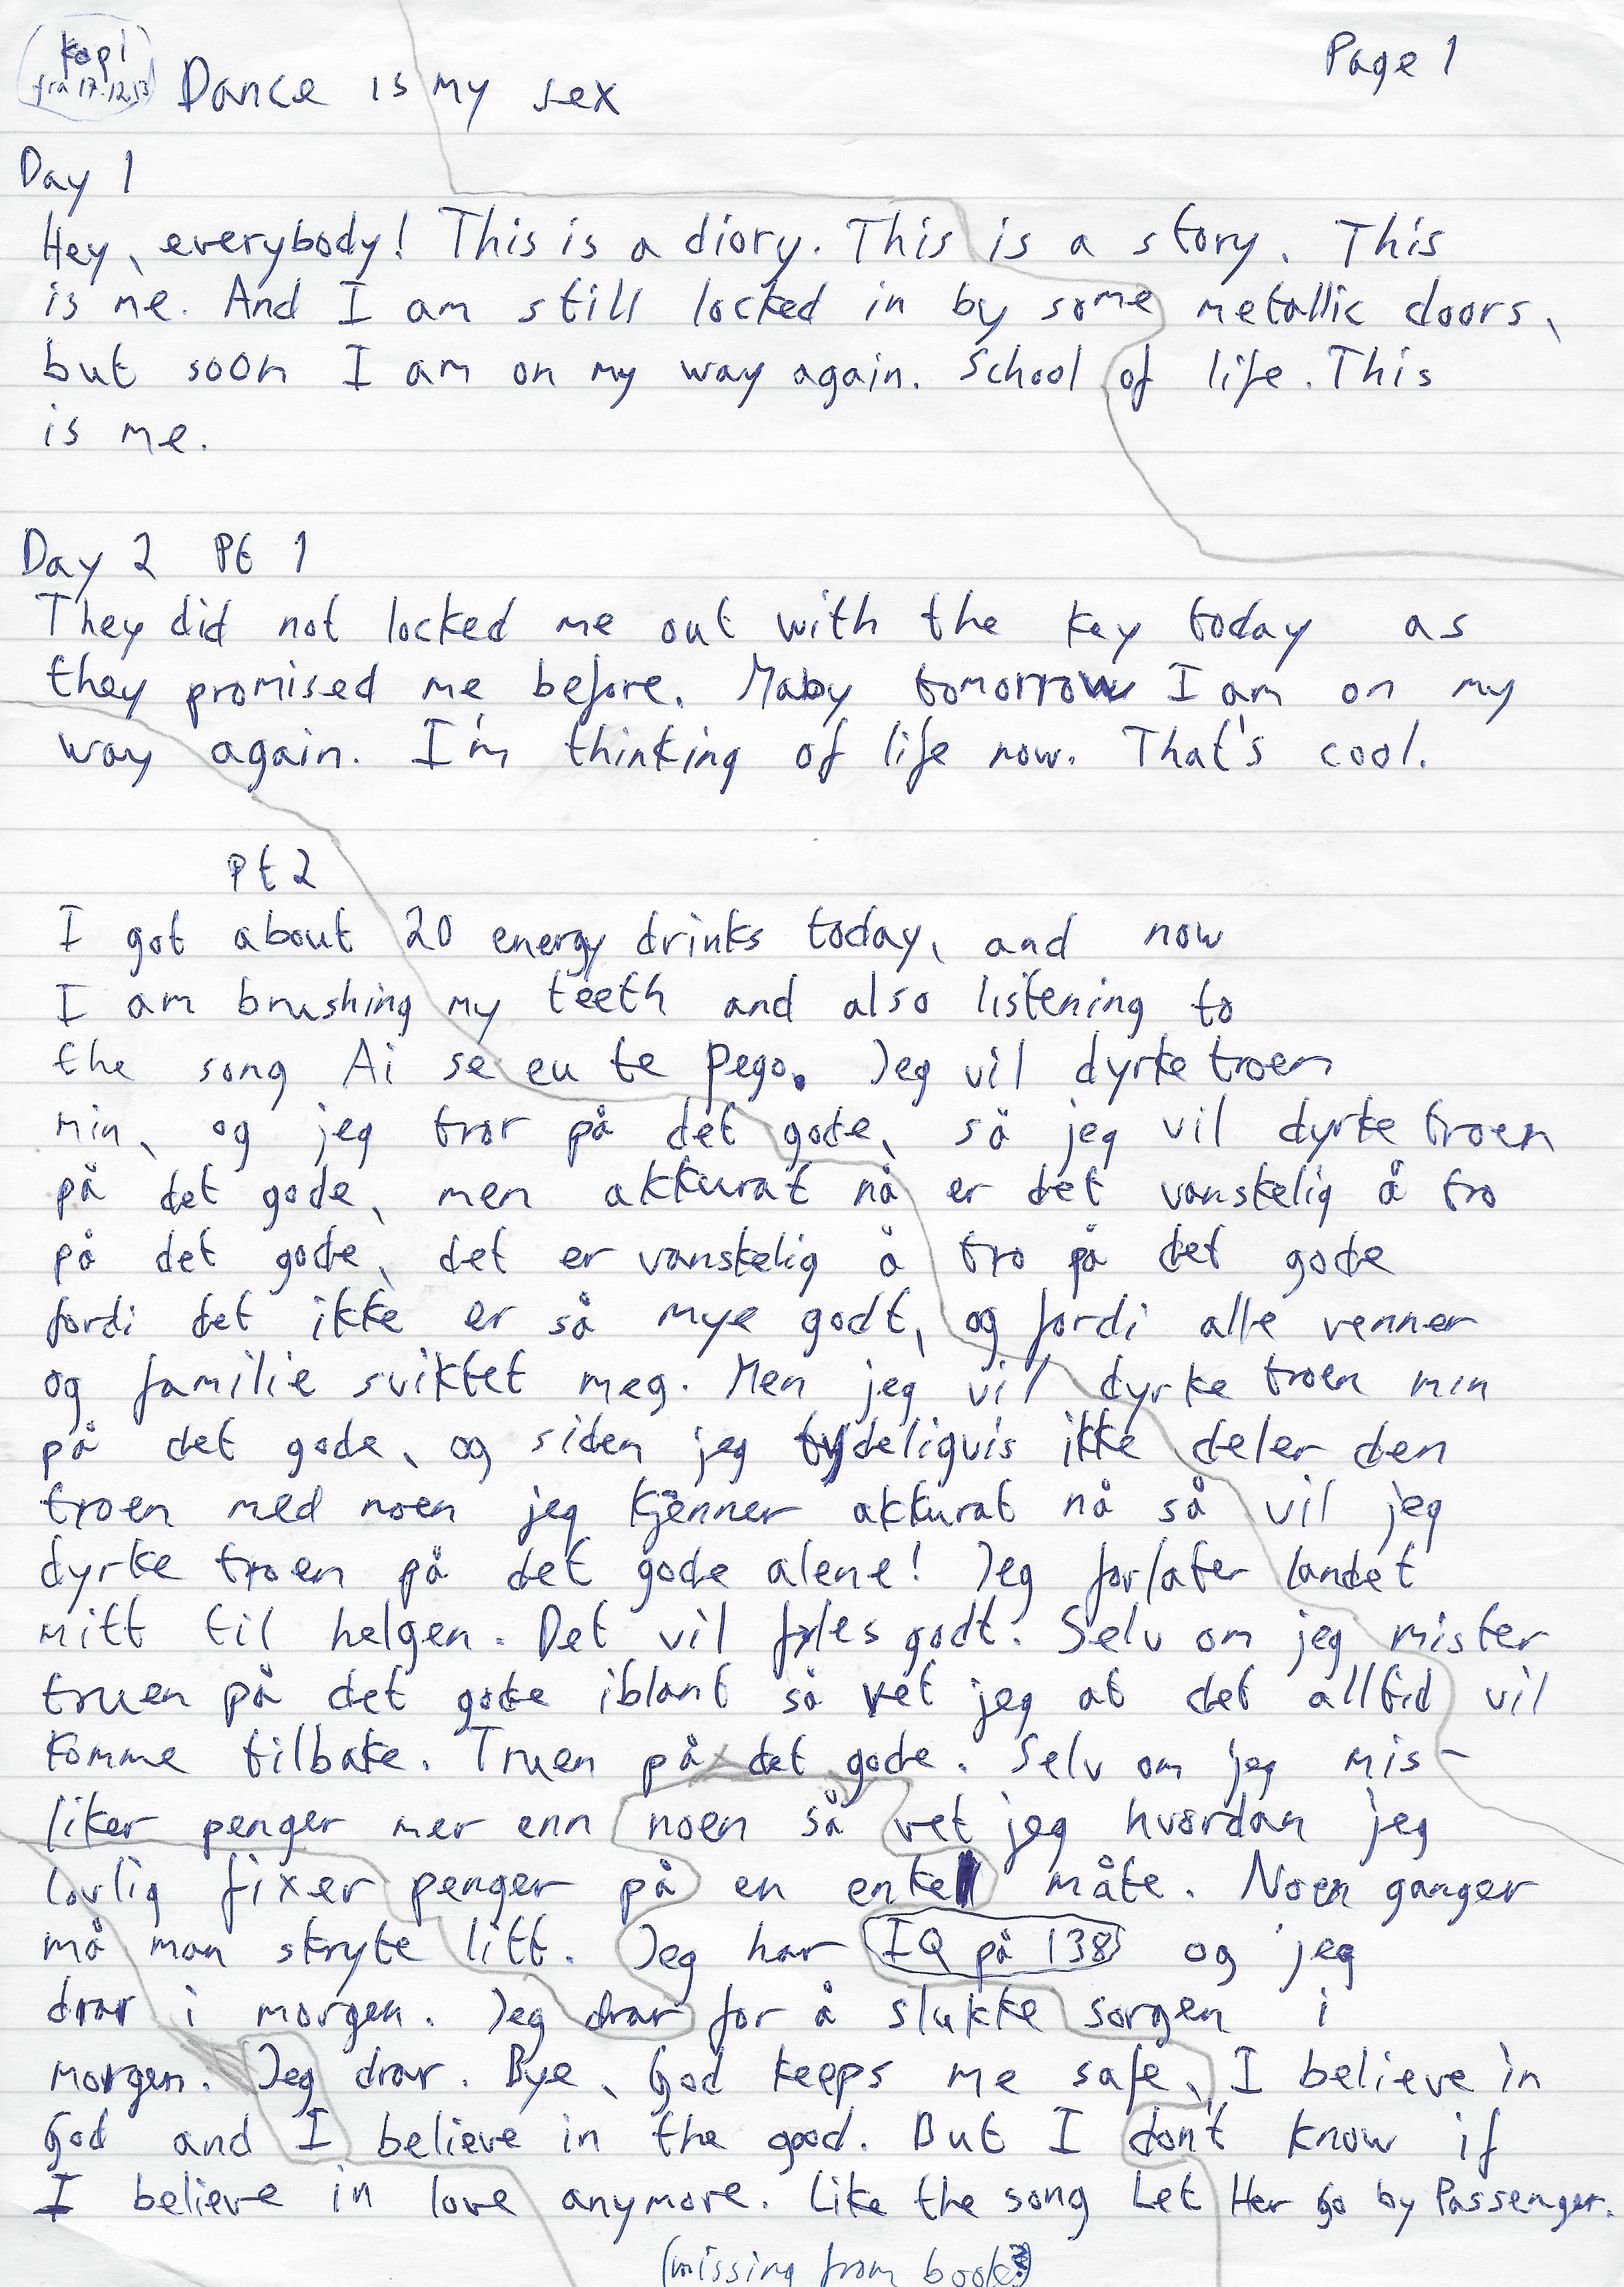 Kopi
fra 17.12.13
Dance is my sex
Page 1
Day 1
Hey, everybody! This is a diory. This is a story. This
is me. And I am still locked in by some metallic doors,
but soon I am on my way again. School of life. This
is me.
Day 2 Pt 1
They did not locked me out with the key today as
they promised me before. Maby tomorrow I am on my
way again. I'm thinking of life now. That's cool.
Pt 2
I got about 20 energy drinks today, and now
I am brushing my teeth and also listening to
the song Ai se eu te pego. Jeg vil dyrke troen
min, og jeg tror på det gode, så jeg vil dyrke troen
på det gode, men akkurat nå er det vanskelig å tro
på det gode, det er vanskelig å tro på det gode
fordi det ikke er så mye godt, og fordi alle venner
og familie sviktet meg. Men jeg vil dyrke troen min
på det gode, og siden jeg tydeligvis ikke deler den
troen med noen jeg kjenner akkurat nå så vil jeg
dyrke troen på det gode alene! Jeg forlater landet
mitt til helgen. Det vil føles godt. Selv om jeg mister
truen på det gode iblant så vet jeg at det alltid vil
komme tilbake. Truen på det gode. Selv om jeg mis-
liker penger mer enn noen så vet jeg hvordan jeg
lovlig fixer penger på en enkel måte. Noen ganger
må man skryte litt. Jeg har IQ på 138 og jeg
drar i morgen. Jeg drar for å slukke sorgen i
morgen. Jeg drar. Bye, God keeps me safe, I believe in
God and I believe in the good. But I don't know if
I believe in love anymore. Like the song Let Her Go by Passenger.
(missing from book?)